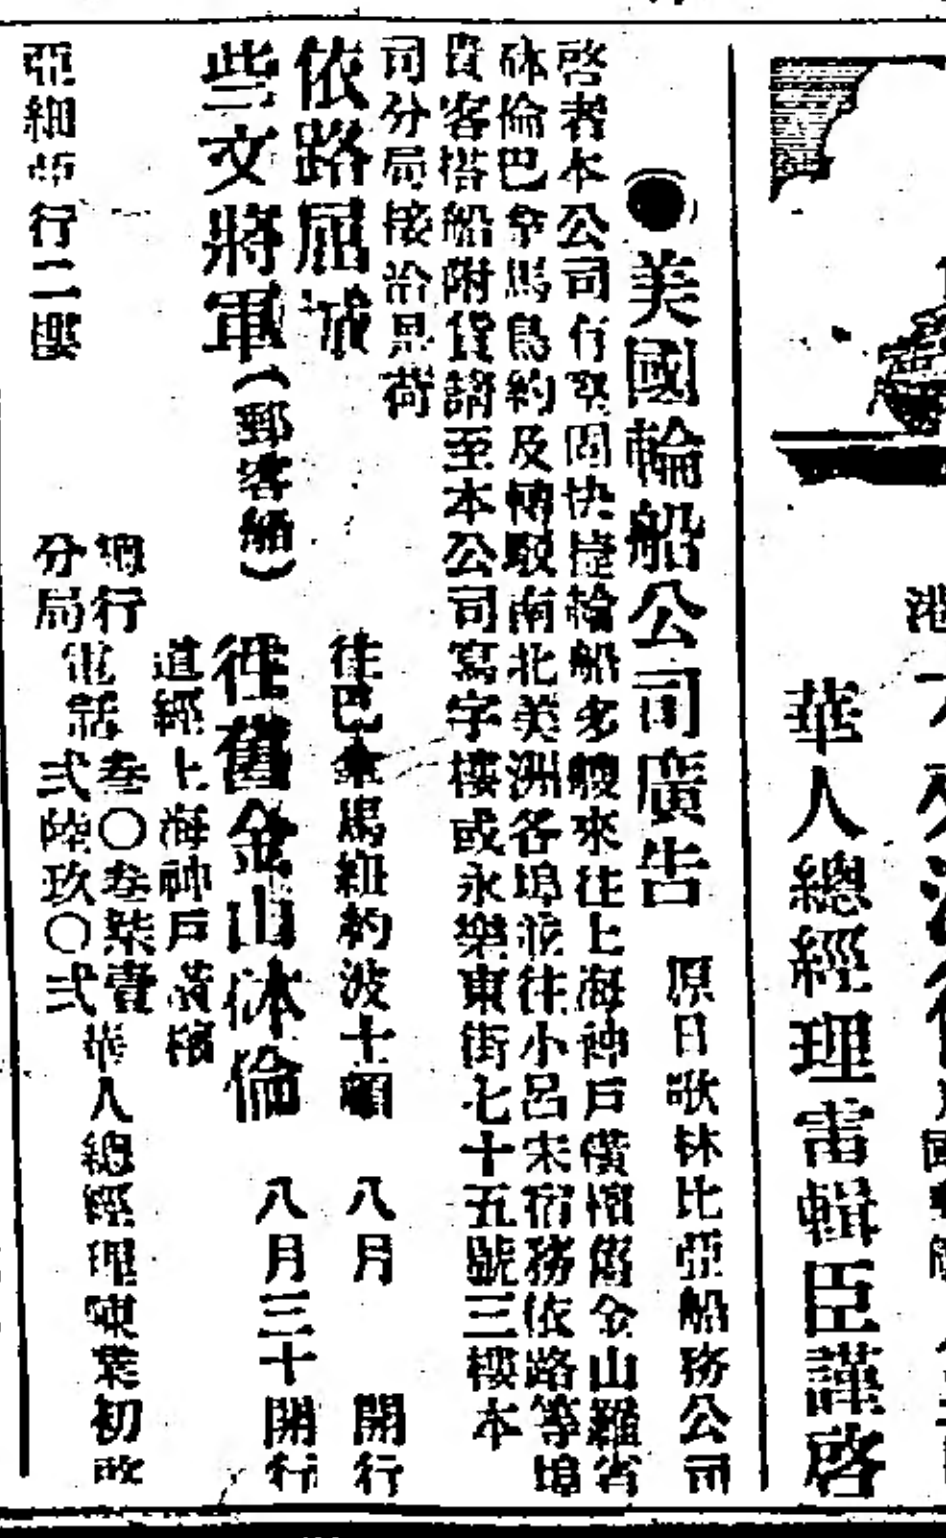 華人總經理雷輯臣謹啓
●美國輪船公司廣告 原日歌林比亞船務公司
啓者本公司有堅固快捷輪船多艘來往上海神戶橫檳舊金山羅省
砵倫巴拿馬鳥約及轉駁南北美洲各埠並往小呂宋宿務依路等埠
貴客搭船附貨請至本公司寫字樓或永樂東街七十五號三樓本
司分局接洽是荷
依路屈城 往巴拿馬紐約波士頓 八月 開行
些文將軍(郵客船) 往舊金山砵倫 八月三十開行
道經上海神戶橫檳
總行電話叁〇叁柒壹
分局電話弍陸玖〇弍
華人總經理陳業初啟
亞細亞行二樓